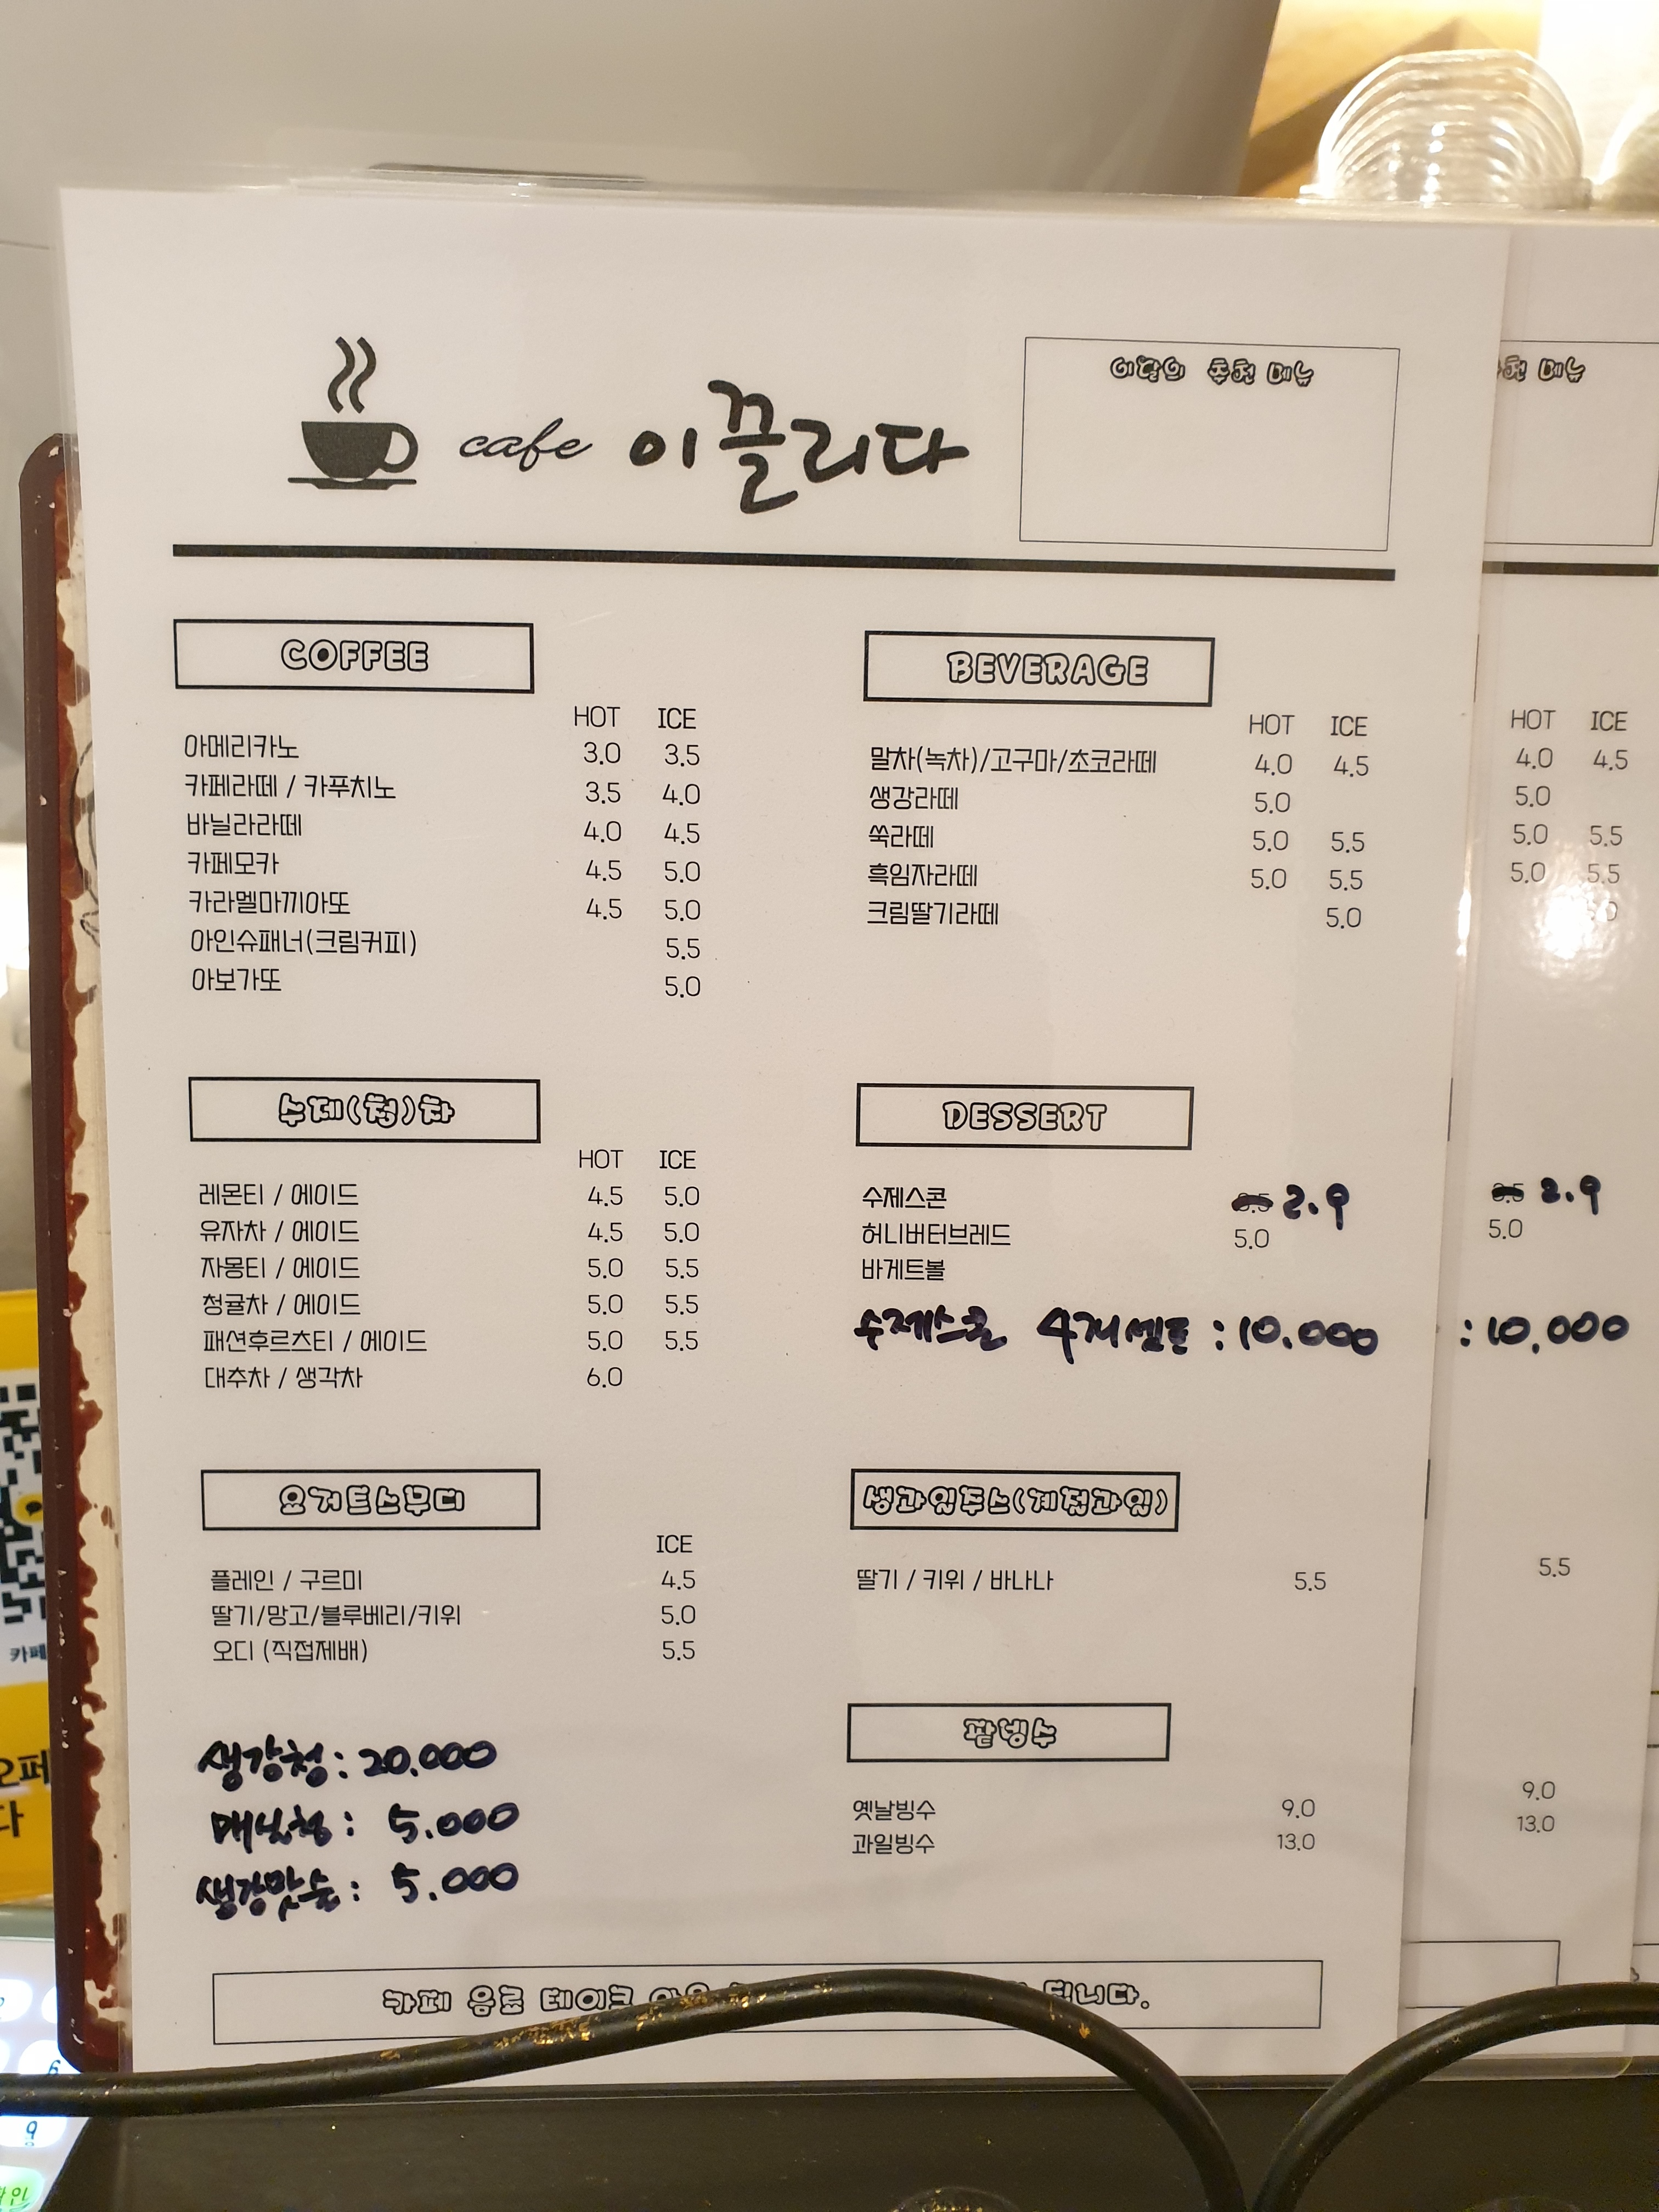 cafe 이끌리다
이달의 추천 메뉴
COFFEE
HOT ICE
아메리카노 3.0 3.5
카페라떼 / 카푸치노 3.5 4.0
바닐라라떼 4.0 4.5
카페모카 4.5 5.0
카라멜마끼아또 4.5 5.0
아인슈패너(크림커피) 5.5
아보가또 5.0
BEVERAGE
HOT ICE
말차(녹차)/고구마/초코라떼 4.0 4.5
생강라떼 5.0
쑥라떼 5.0 5.5
흑임자라떼 5.0 5.5
크림딸기라떼 5.0
수제(청)차
HOT ICE
레몬티 / 에이드 4.5 5.0
유자차 / 에이드 4.5 5.0
자몽티 / 에이드 5.0 5.5
청귤차 / 에이드 5.0 5.5
패션후르츠티 / 에이드 5.0 5.5
대추차 / 생각차 6.0
DESSERT
수제스콘 2.9
허니버터브레드 5.0
바게트볼
수제스콘 4개셀트 : 10.000
요거트스무디
ICE
플레인 / 구르미 4.5
딸기/망고/블루베리/키위 5.0
오디 (직접제배) 5.5
생과일주스(계절과일)
딸기 / 키위 / 바나나 5.5
생강청 : 20.000
매실청 : 5.000
생강맛술 : 5.000
팥빙수
옛날빙수 9.0
과일빙수 13.0
카페 음료 테이크 됩니다.
천 메뉴
HOT ICE
4.0 4.5
5.0
5.0 5.5
5.0 5.5
2.9
5.0
: 10,000
5.5
9.0
13.0
카페
다